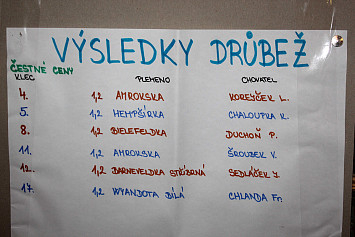 VÝSLEDKY DRŮBEŽ
ČESTNÉ CENY
KLEC PLEMENO CHOVATEL
4. 1,2 AMROKSKA KOREJČEK L.
5. 1,2 HEMPŠÍRKA CHALOUPKA K.
8. 1,2 BIELEFELDKA DUCHOŇ P.
11. 1,2 AMROKSKA ŠROUBEK V.
12. 1,2 BARNEVELDKA STŘÍBRNÁ SEDLÁČEK J.
17. 1,2 WYANDOTA BÍLÁ CHLANDA Fr.